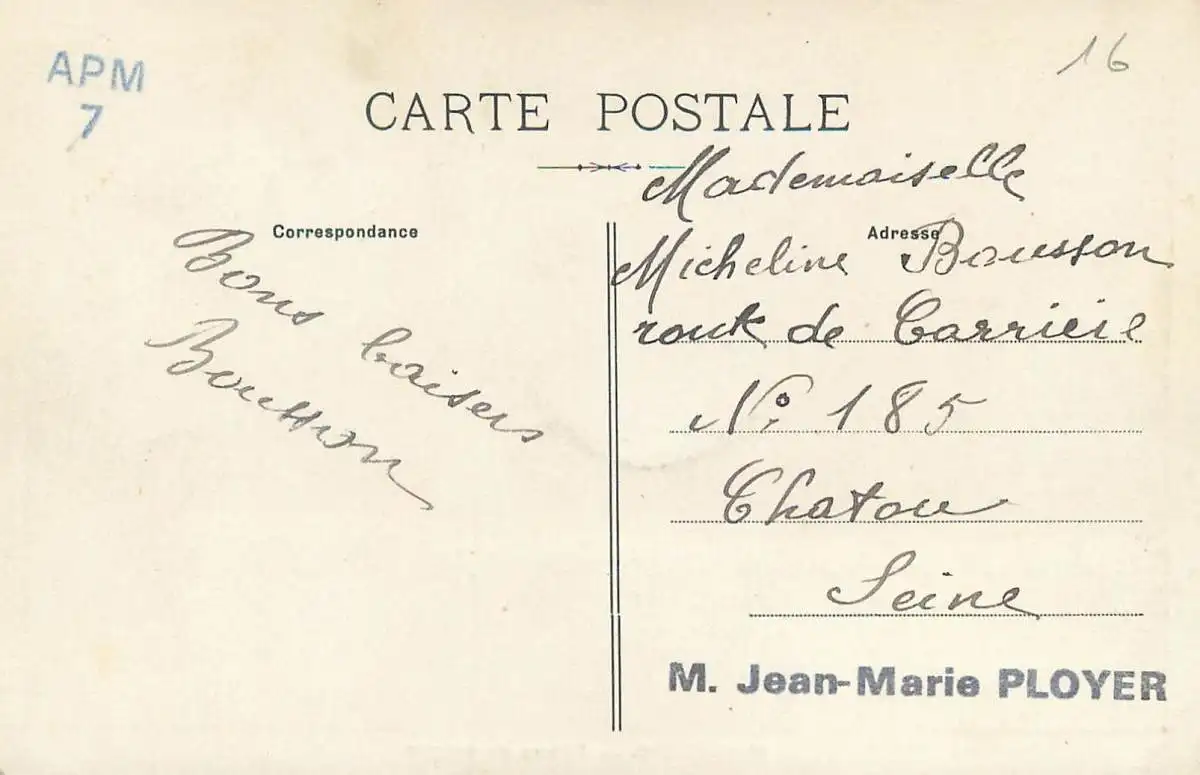 APM
7
16
CARTE POSTALE
Correspondance
Bons baisers
Bousson
Adresse
Mademoiselle
Micheline Bousson
route de Carrieie
N° 185
Chatou
Seine
M. Jean-Marie PLOYER